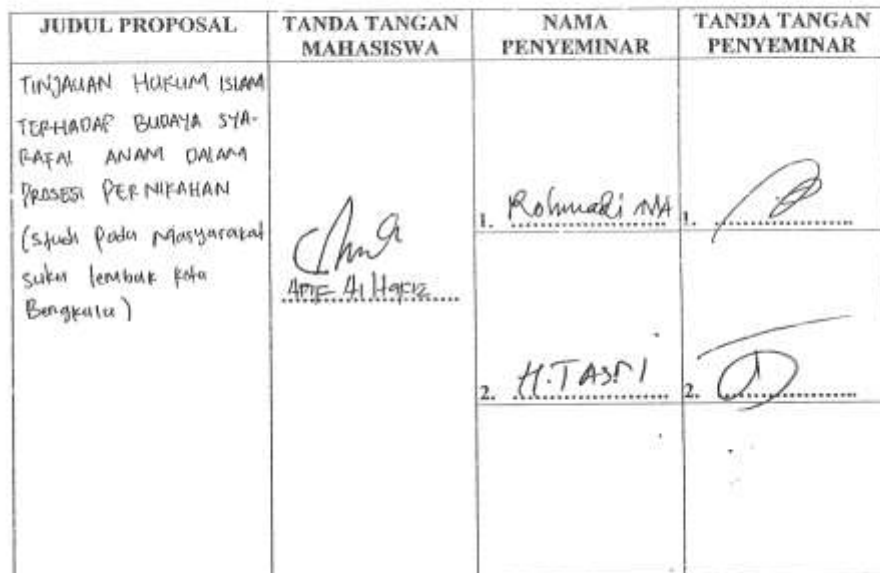 JUDUL PROPOSAL
TANDA TANGAN
MAHASISWA
NAMA
PENYEMINAR
TANDA TANGAN
PENYEMINAR
TINJAUAN HUKUM ISLAM
TERHADAP BUDAYA SYA-
RAFAL ANAM DALAM
PROSESI PERNIKAHAN
(Studi Pada Masyarakat
suku lembak kota
Bengkulu)
Arif Al Hafiz
1. Rohmadi MA
1.
2. H. TASRI
2.